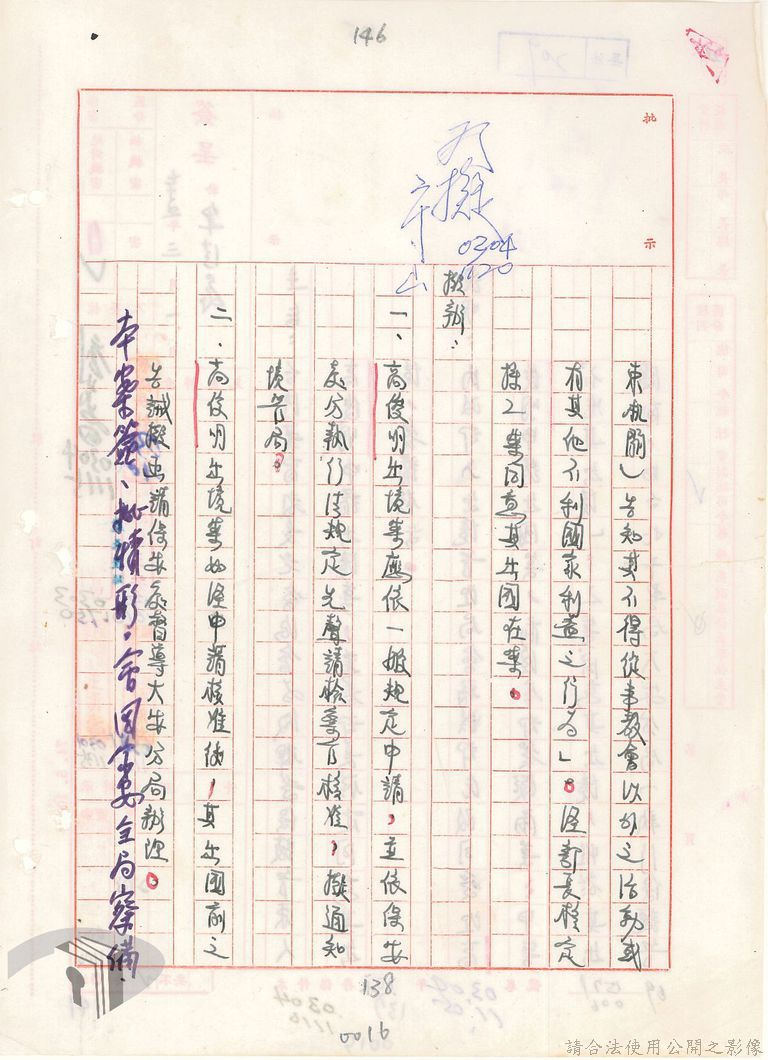 146
批示
如擬
0304
1120
束机關）告知其不得從事教會以外之活動或
有其他不利國家利益之行為」。經部長核定
採乙案同意其出國在案。
擬辦：
一、高俊明出境案應依一般規定申請，並依保安
處分執行法規定先聲請檢察官核准，擬通知
境管局。
二、高俊明出境案如經申請核准後，其出國前之
告誡擬函請保安處督導大安分局辦理。
本案簽、批情形，會國安全局察備
138
0016
請合法使用公開之影像